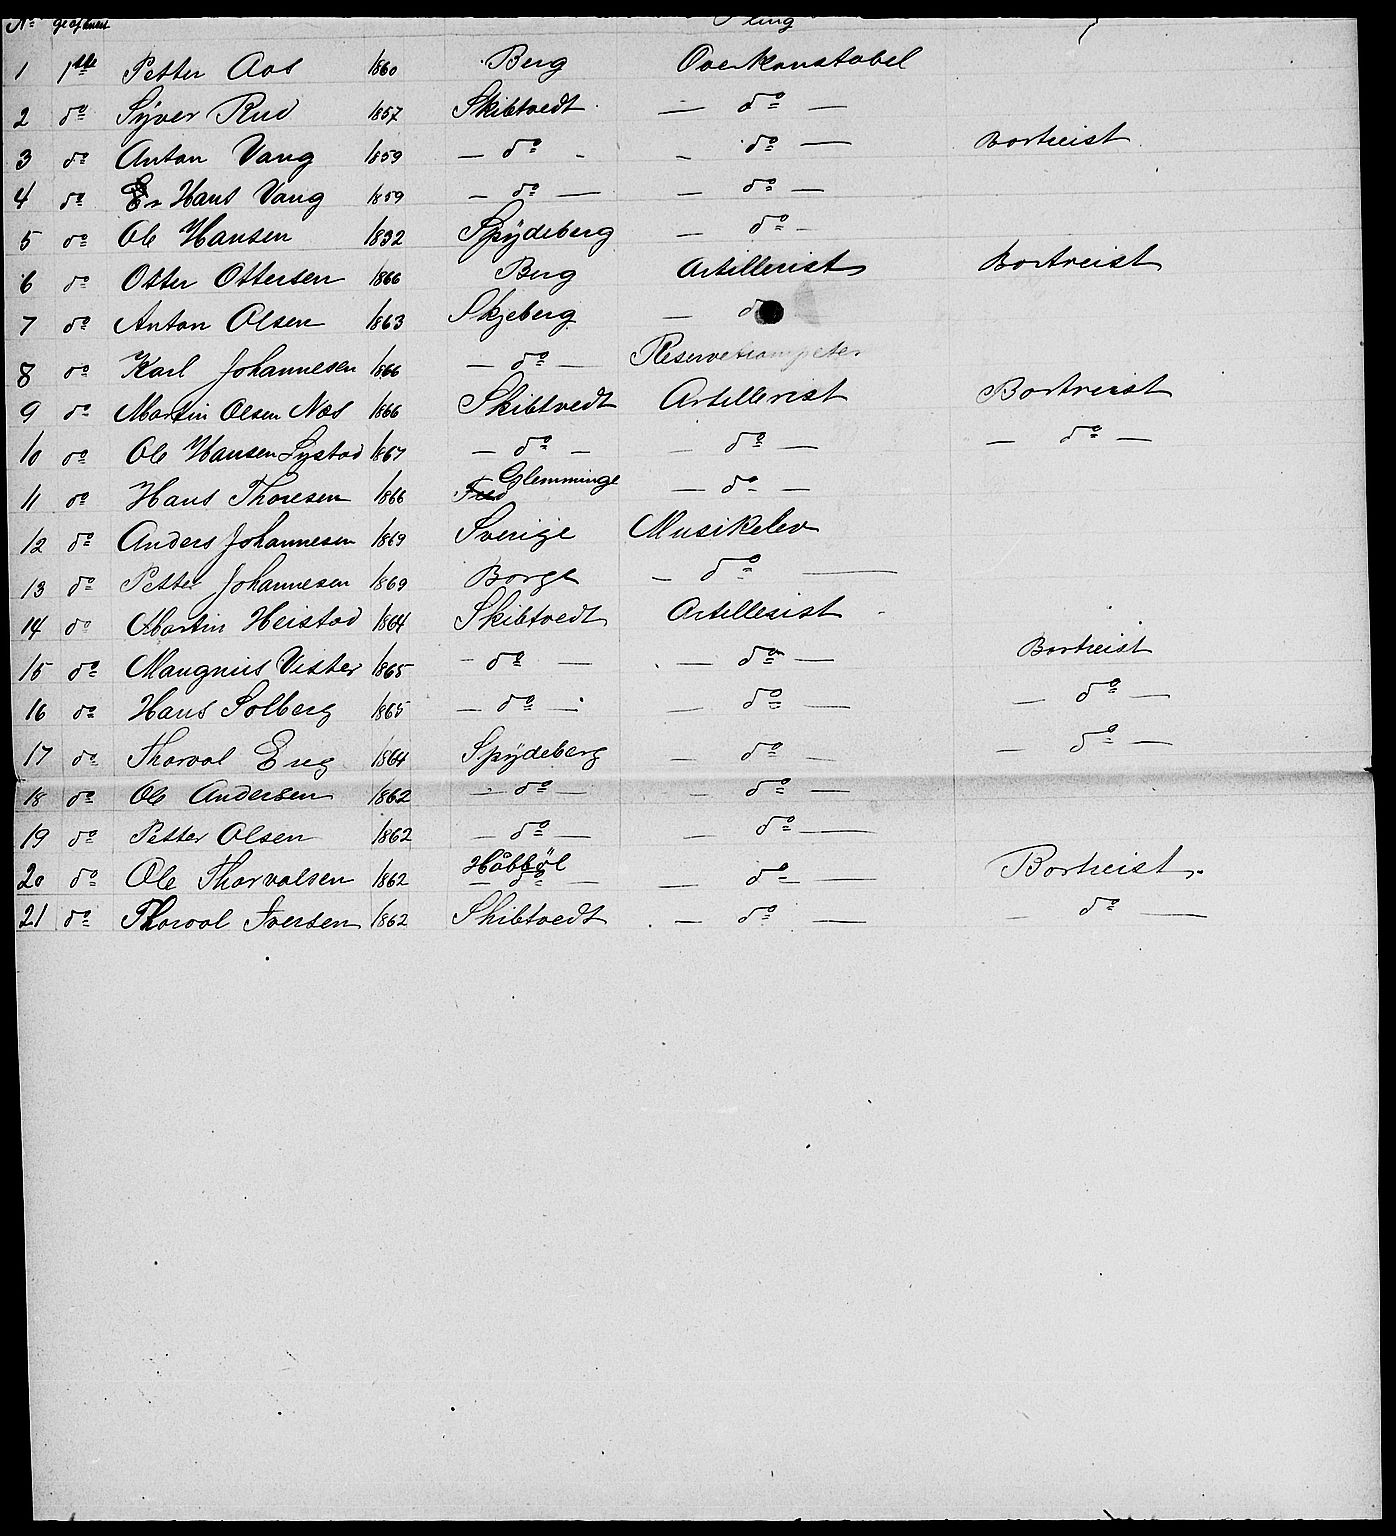 No
1 1ste Petter Aas 1860 Berg Overkonstabel
2 do Syver Rud 1857 Skibtvedt — do —
3 do Anton Vang 1859 — do - - do — bortreist
4 do Hans Vang 1859 — do — — do —
5 do Ole Hansen 1832 Spydeberg — do -
6 do Otter Ottersen 1866 Berg Artillerist Bortreist
7 do Anton Olsen 1863 Skjeberg — d
8 do Karl Johannesen 1866 — do — Reservetrompeter
9 do Martin Olsen Næs 1866 Skibtvedt Artillerist Bortreist
10 do Ole Hansen Systad 1867 — do - - do — — do —
11 do Hans Thoresen 1866 Fred Glemminge — do —
12 do Anders Johannesen 1869 Sverige Musikelev
13 do Petter Johannesen 1869 Borge — do —
14 do Martin Heistad 1864 Skibtvedt Artillerist
15 do Mangnus Vister 1865 - do — — do — Bortreist
16 do Hans Solberg 1865 — do — — do — — do —
17 do Thorval Eng 1864 Spydeberg — do — — do —
18 do Ole Andersen 1862 — do — — do —
19 do Petter Olsen 1862 — do — — do —
20 do Ole Thorvalsen 1862 Håbböl — do — — do — Bortreist.
21 do Thorval Iversen 1862 Skibtvedt — do — — do —